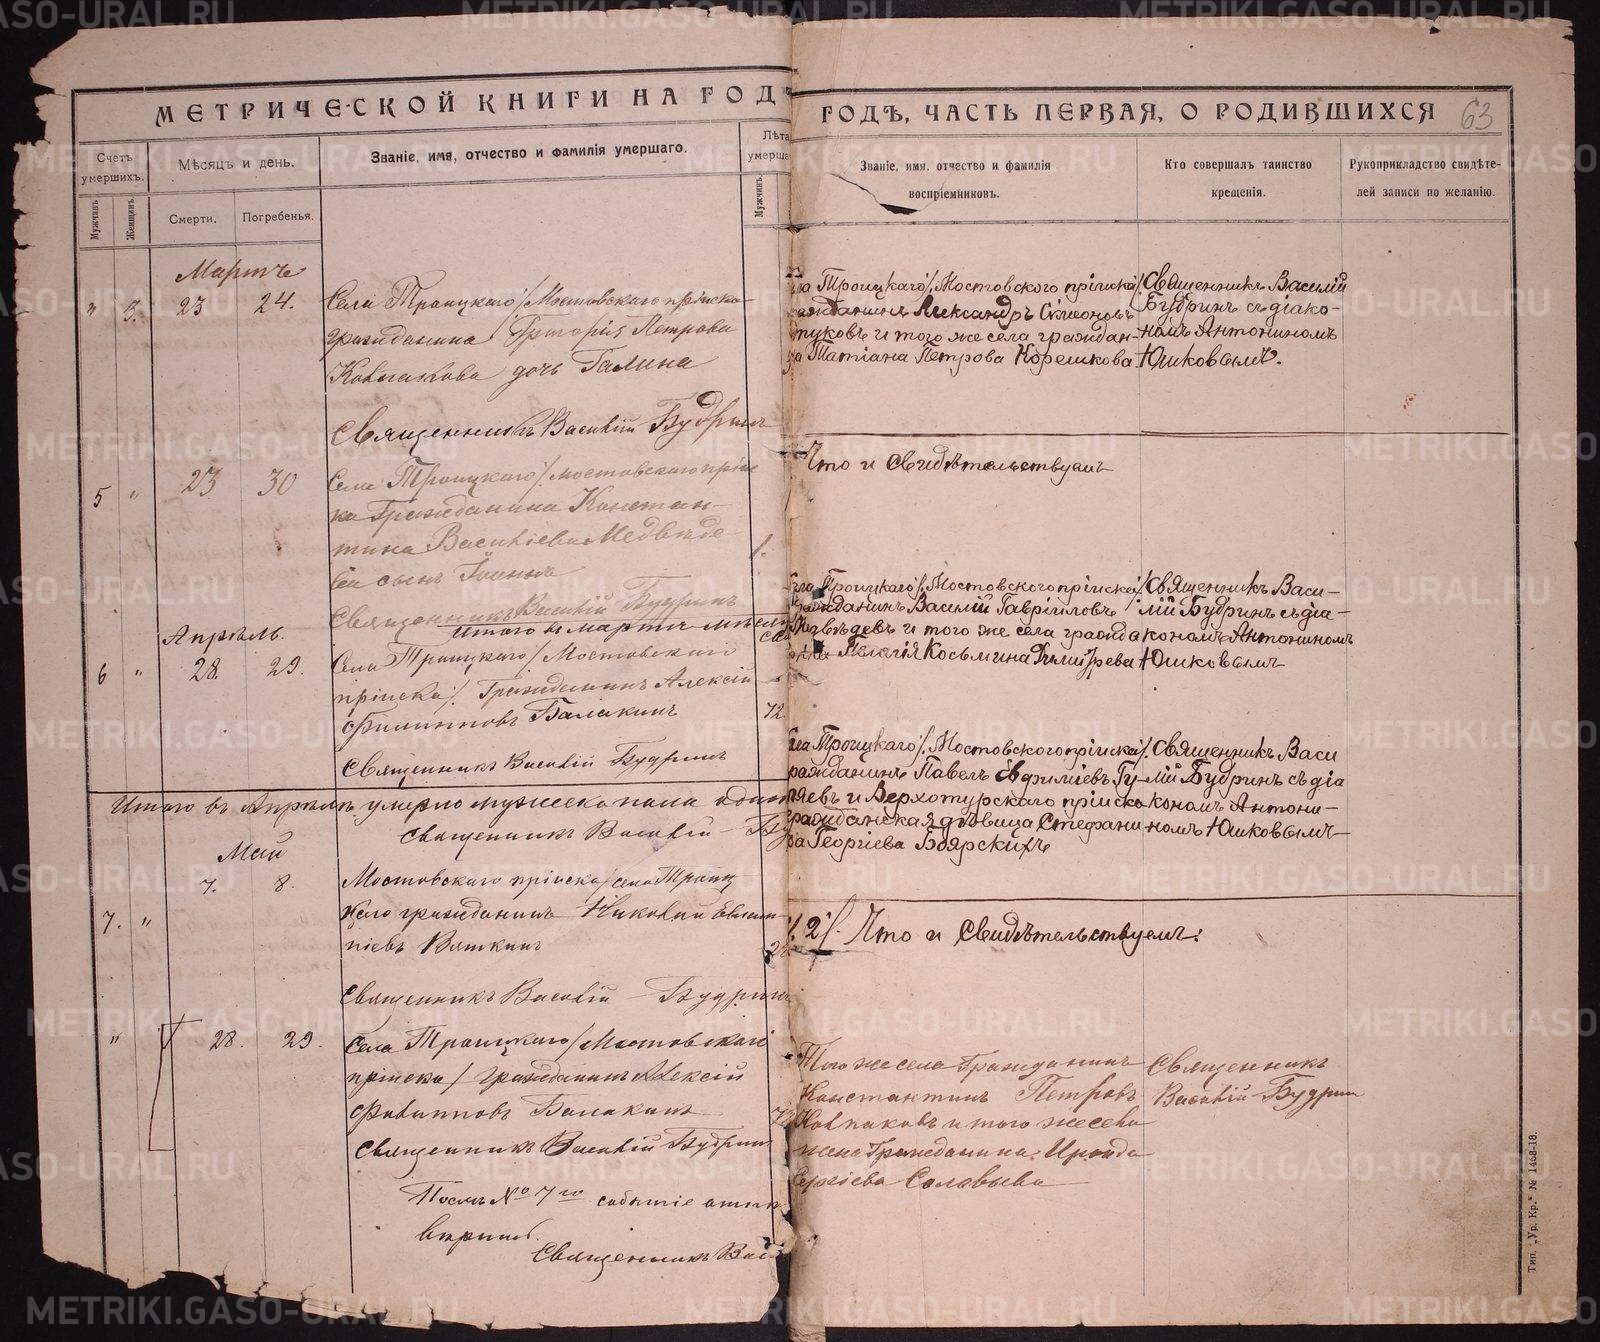 МЕТРИЧЕСКОЙ КНИГИ НА ГОД
Счетъ умершихъ.
Мужчинъ
Женщинъ
Мѣсяцъ и день.
Смерти.
Погребенья.
Званіе, имя, отчество и фамилія умершаго.
Лѣта
умерша
Мужчинъ
Мартъ
" 3. 23 24. Села Троицкаго /Мостовского пріиска
гражданина Григорія Петрова
Колмакова дочь Галина
Священникъ Василій Будринъ
5 " 23 30 Села Троицкаго /Мостовскаго пріис
ка Гражданина Констан-
тина Васильева Медвѣде-
ва сынъ
1.
Священникъ Василій Будринъ
Итого въ Мартѣ
Апрѣль.
6 " 28. 29. Села Троицкаго /Мостовскаго
пріиска/. Гражданинъ Алексій
Филипповъ Балакинъ
72.
Священникъ Василій Будринъ
Итого въ Апрѣлѣ умерло мужеска пола один
Священникъ Василій Бу
Май
7. 8. Мостовскаго пріиска /села Троиц
7. " каго гражданинъ Николай Евлам
піевъ Вяткинъ
Священникъ Василій Будринъ
" 28. 29. Села Троицкаго /Мостовскаго
пріиска/ гражданинъ Алексій
Филипповъ Балакинъ
Священникъ Василій Будринъ
Послѣ № 7го событіе
Священникъ Вас
ГОДѢ, ЧАСТЬ ПЕРВАЯ, О РОДИВШИХСЯ
63
Званіе, имя, отчество и фамилія
воспріемниковъ.
Кто совершалъ таинство
крещенія.
Рукоприкладство свидѣте-
лей записи по желанію.
ла Троицкаго /.Мостовского пріиска/.
ажданинъ Александръ Симеоновъ
туковъ и того же села граждан-
ка Татіана Петрова Корешкова.
Священникъ Василій
Будринъ съ діако-
номъ Антониномъ
Юшковымъ.
Что и Свидѣтельствуемъ
ела Троицкаго /.Мостовского пріиска/.
ажданинъ Василій Гавріиловъ
Медвѣдевъ и того же села гражда
нка Пелагія Косьмина Димитрева
Священникъ Васи-
лій Будринъ съ діа-
кономъ Антониномъ
Юшковымъ
ела Троицкаго /.Мостовского пріиска/.
ражданинъ Павелъ Евфиміевъ Гу-
ляевъ и Верхотурскаго пріиска
гражданская дѣвица Стефани-
да Георгіева Боярскихъ
Священникъ Васи
лій Будринъ съ діа
кономъ Антони-
номъ Юшковымъ
/. 2 /. Что и Свидѣтельствуемъ:
Того же села Гражданинъ
Константинъ Петровъ
Колпаковъ и того же села
жена Гражданина Ираида
Сергіева Соловьева
Священникъ
Василій Будрин
Тип. „Ур. Кр." № 1468-18.
METRIKI.GASO-URAL.RU